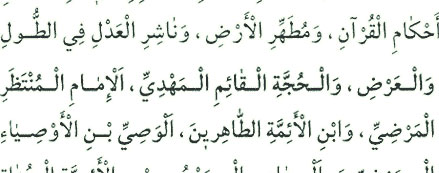 أَحْكَامِ الْقُرْآنِ ، وَمُطَهِّرِ الْأَرْضِ ، وَنَاشِرِ الْعَدْلِ فِي الطُّـولِ
وَالْـعَرْضِ ، وَالْـحُجَّةِ الْـقَائِمِ الْـمَهْدِيِّ ، اَلْإِمَامِ الْـمُنْتَظَرِ
الْمَرْضِيِّ ، وَابْنِ الْأَئِمَّةِ الطَّاهِرِينَ ، اَلْوَصِيِّ بْـنِ الْأَوْصِـيَاءِ